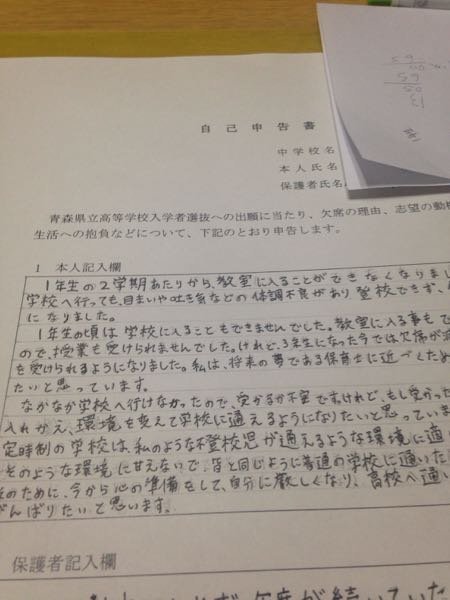 自己申告書
中学校名
本人氏名
保護者氏名
青森県立高等学校入学者選抜への出願に当たり、欠席の理由、志望の動機
生活への抱負などについて、下記のとおり申告します。
1 本人記入欄
1年生の2学期あたりから、教室に入ることができなくなりまし
学校へ行っても、目まいや吐き気などの体調不良があり登校できず、
になりました。
1年生の頃は学校に入ることもできませんでした。教室に入る事もで
ので、授業も受けられませんでした。けれど、3年生になった今では欠席が減
を受けられるようになりました。私は、将来の夢である保育士に近づくため
たいと思っています。
なかなか学校へ行けなかったので、受かるか不安ですけれど、もし受かった
入れかえ、環境を変えて学校に通えるようになりたいと思っていま
定時制の学校は、私のような不登校児が通えるような環境に適
そのような環境に甘えないで、皆と同じように普通の学校に通いた
のために、今から心の準備をして、自分に厳しくなり、高校へ通い
がんばりたいと思います。
保護者記入欄
欠席が続いていた